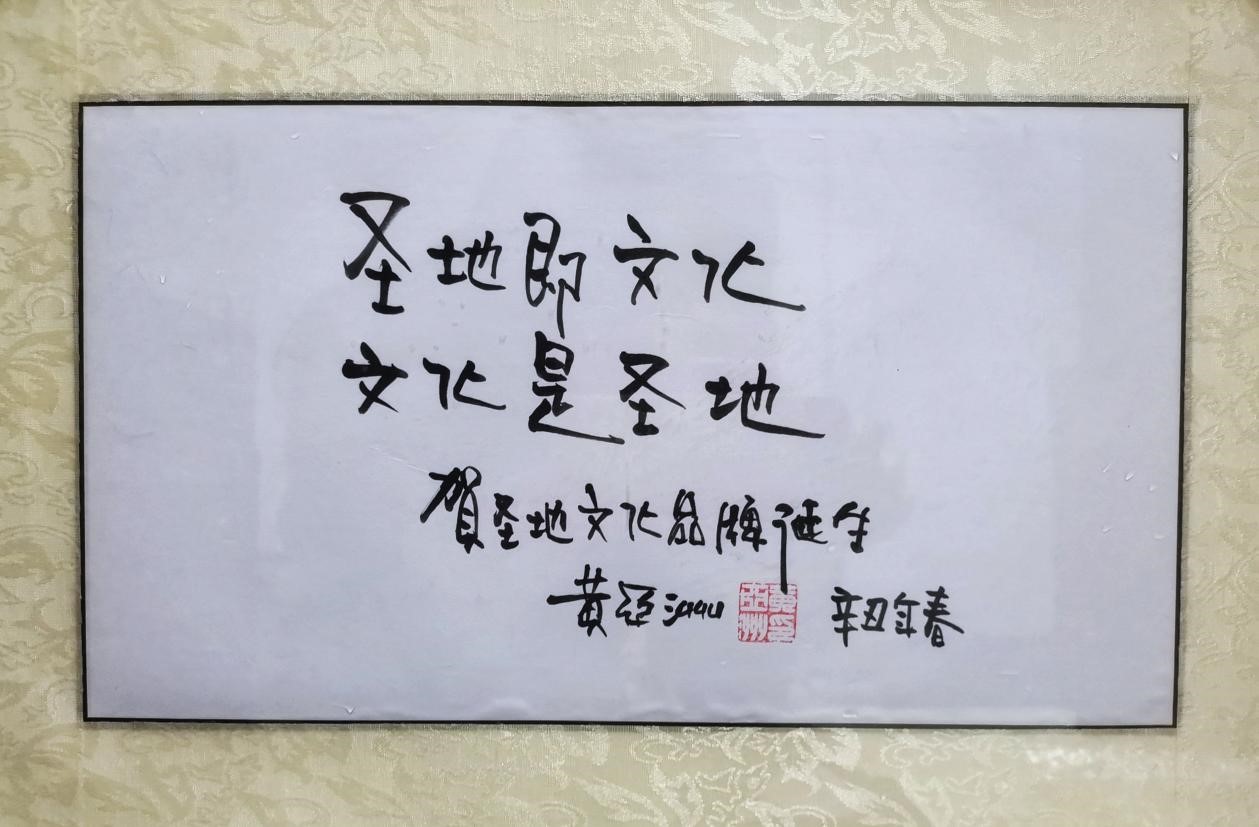 圣地即文化
文化是圣地
賀圣地文化品牌诞生
黄亚洲 黄亚洲印 辛丑年春